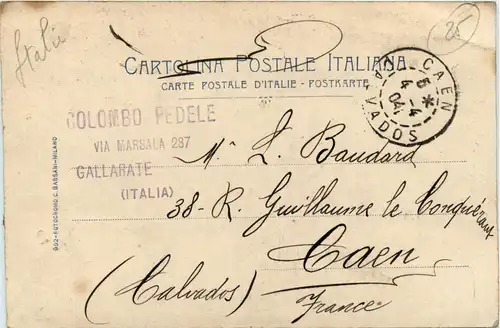 Italie
25
CARTOLINA POSTALE ITALIANA
CARTE POSTALE D'ITALIE - POSTKARTE
CAEN
5 *
4 -4
04
CALVADOS
COLOMBO FEDELE
VIA MARSALA 287
GALLARATE
(ITALIA)
902-FOTOCROMO C. BASSANI-MILANO
Mr L. Baudard
38 - R. Guillaume le Conquérant
Caen
(Calvados)
France